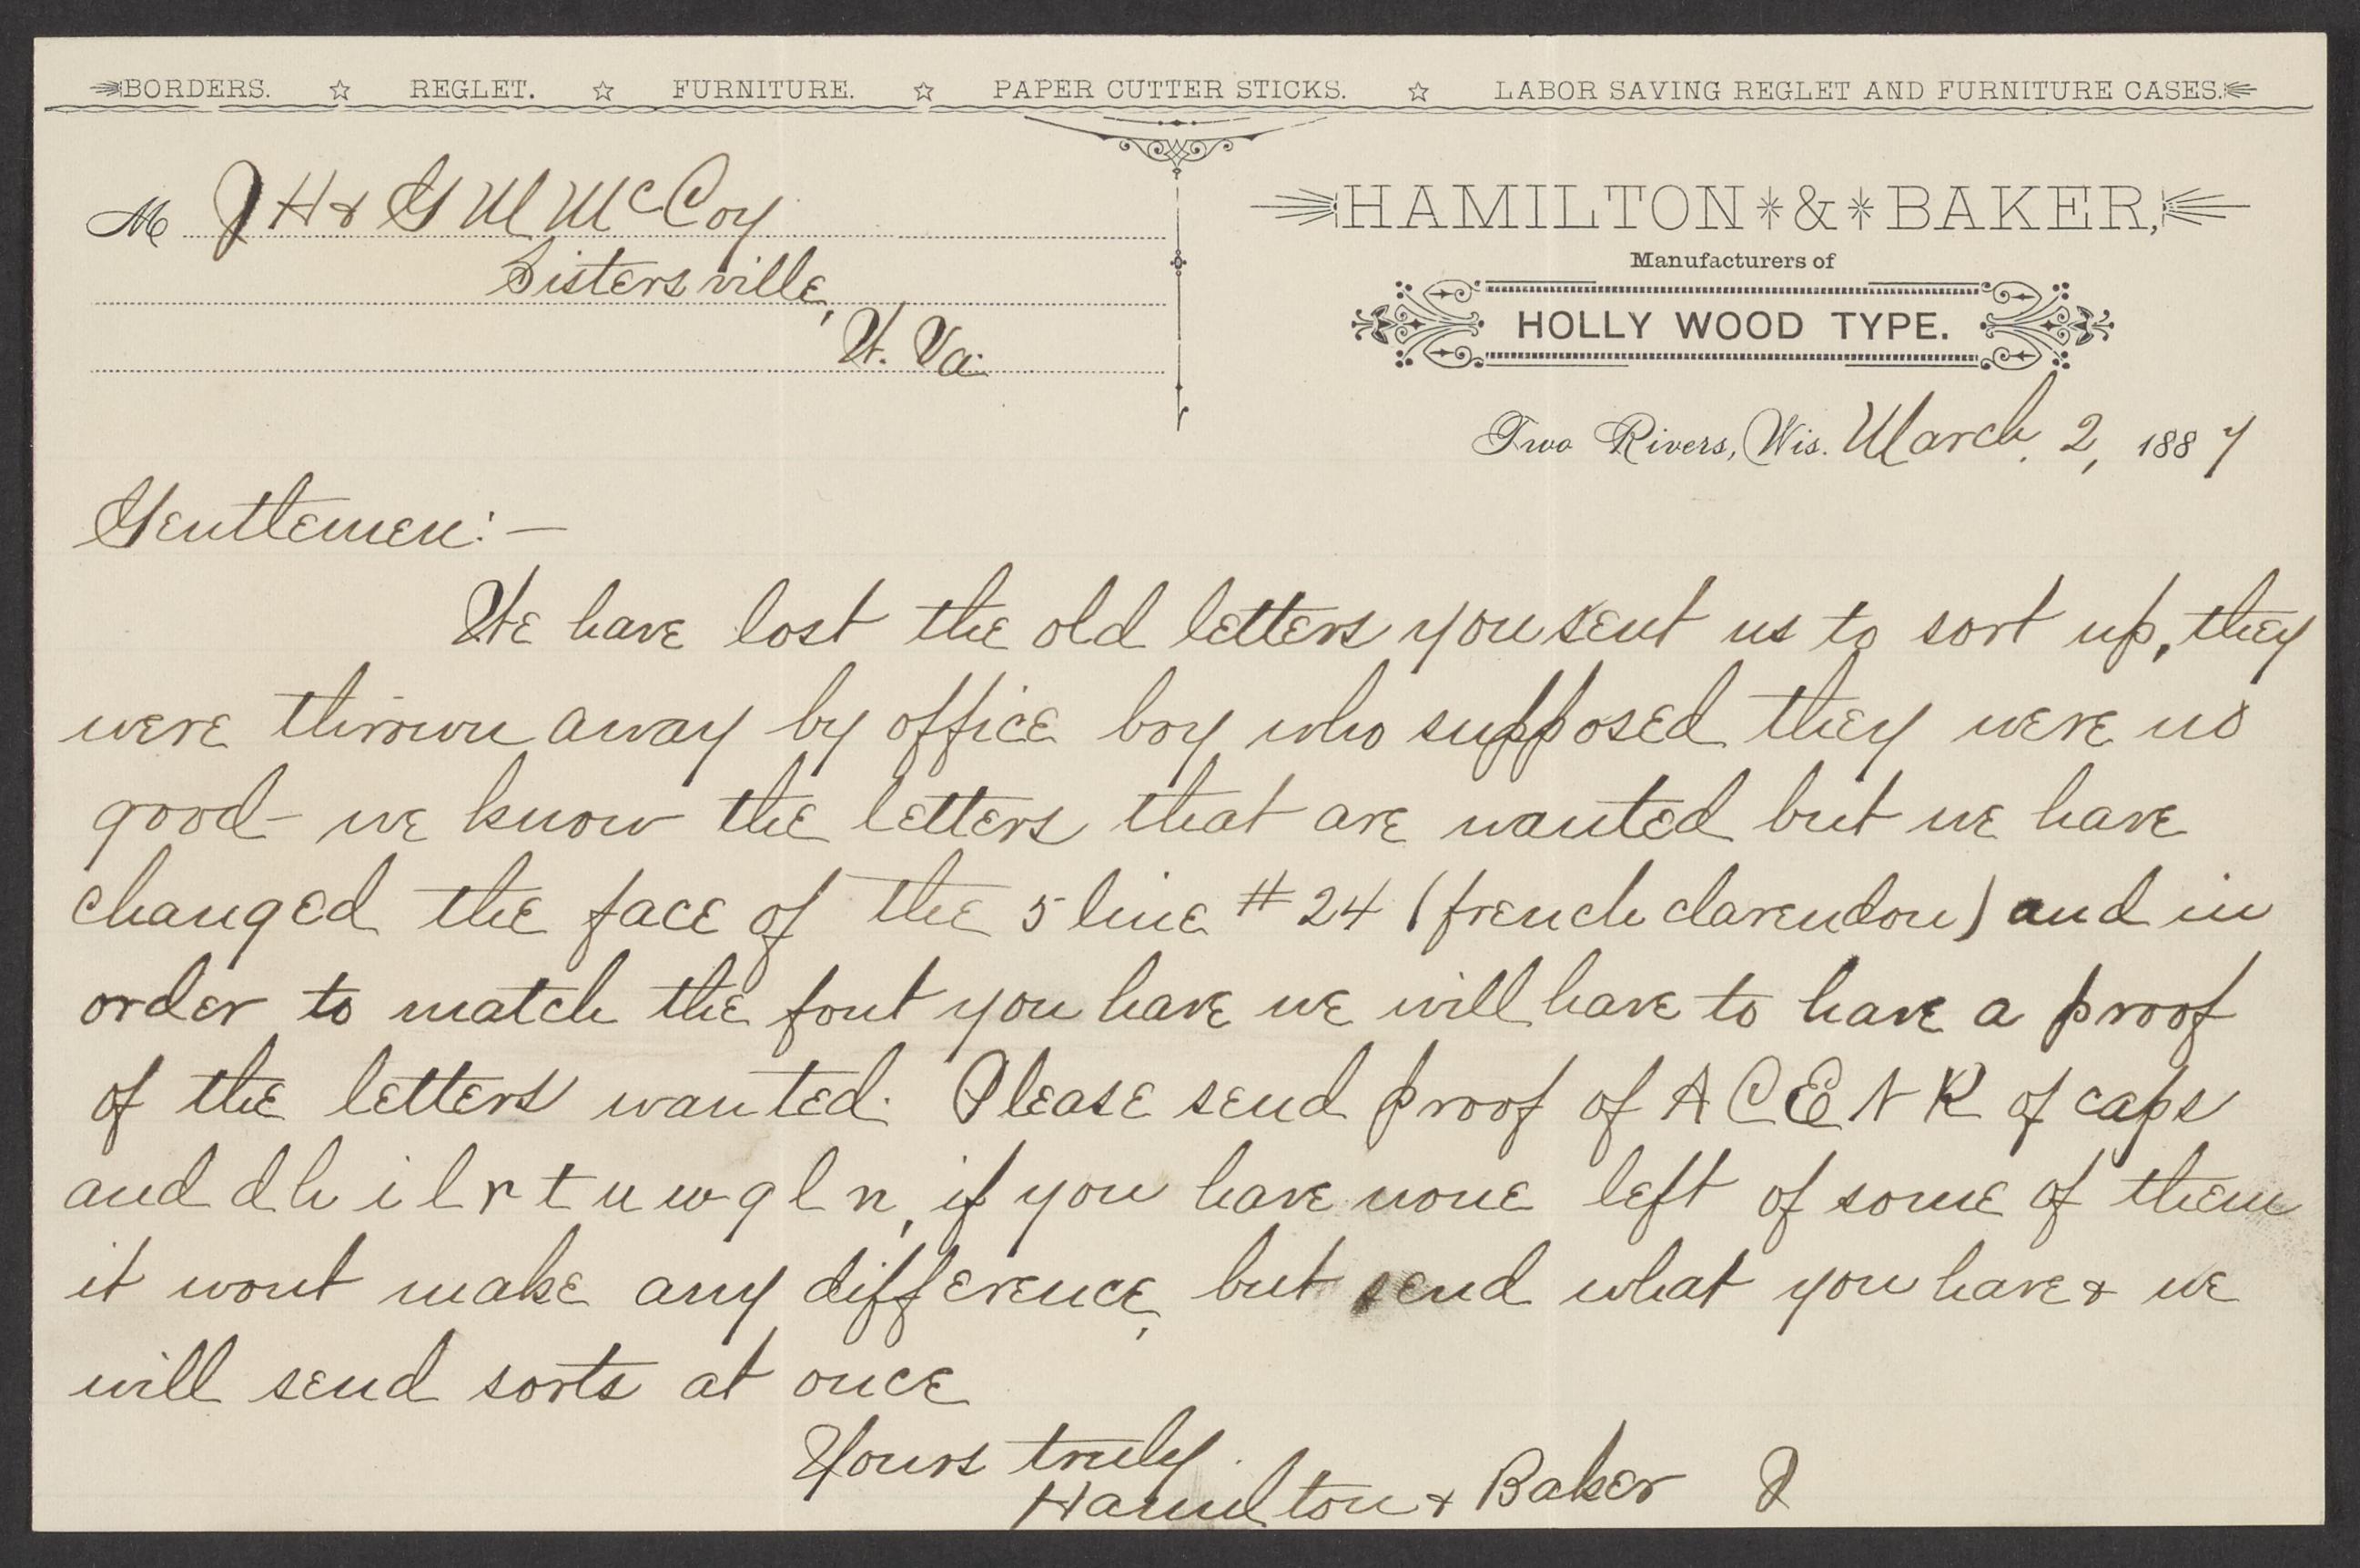 BORDERS. ☆ REGLET. ☆ FURNITURE. ☆ PAPER CUTTER STICKS. ☆ LABOR SAVING REGLET AND FURNITURE CASES.
M J H & G W McCoy
Sistersville,
W. Va.
HAMILTON * & * BAKER,
Manufacturers of
HOLLY WOOD TYPE.
Two Rivers, Wis. March 2, 1887
Gentlemen:—
We have lost the old letters you sent us to sort up, they
were thrown away by office boy who supposed they were no
good - we know the letters that are wanted but we have
changed the face of the 5 line # 24 (french clarendon) and in
order to match the font you have we will have to have a proof
of the letters wanted. Please send proof of A C E N R of caps
and d h i l r t u w g l n, if you have none left of some of them
it wont make any difference, but send what you have & we
will send sorts at once
Yours truly.
Hamilton & Baker J